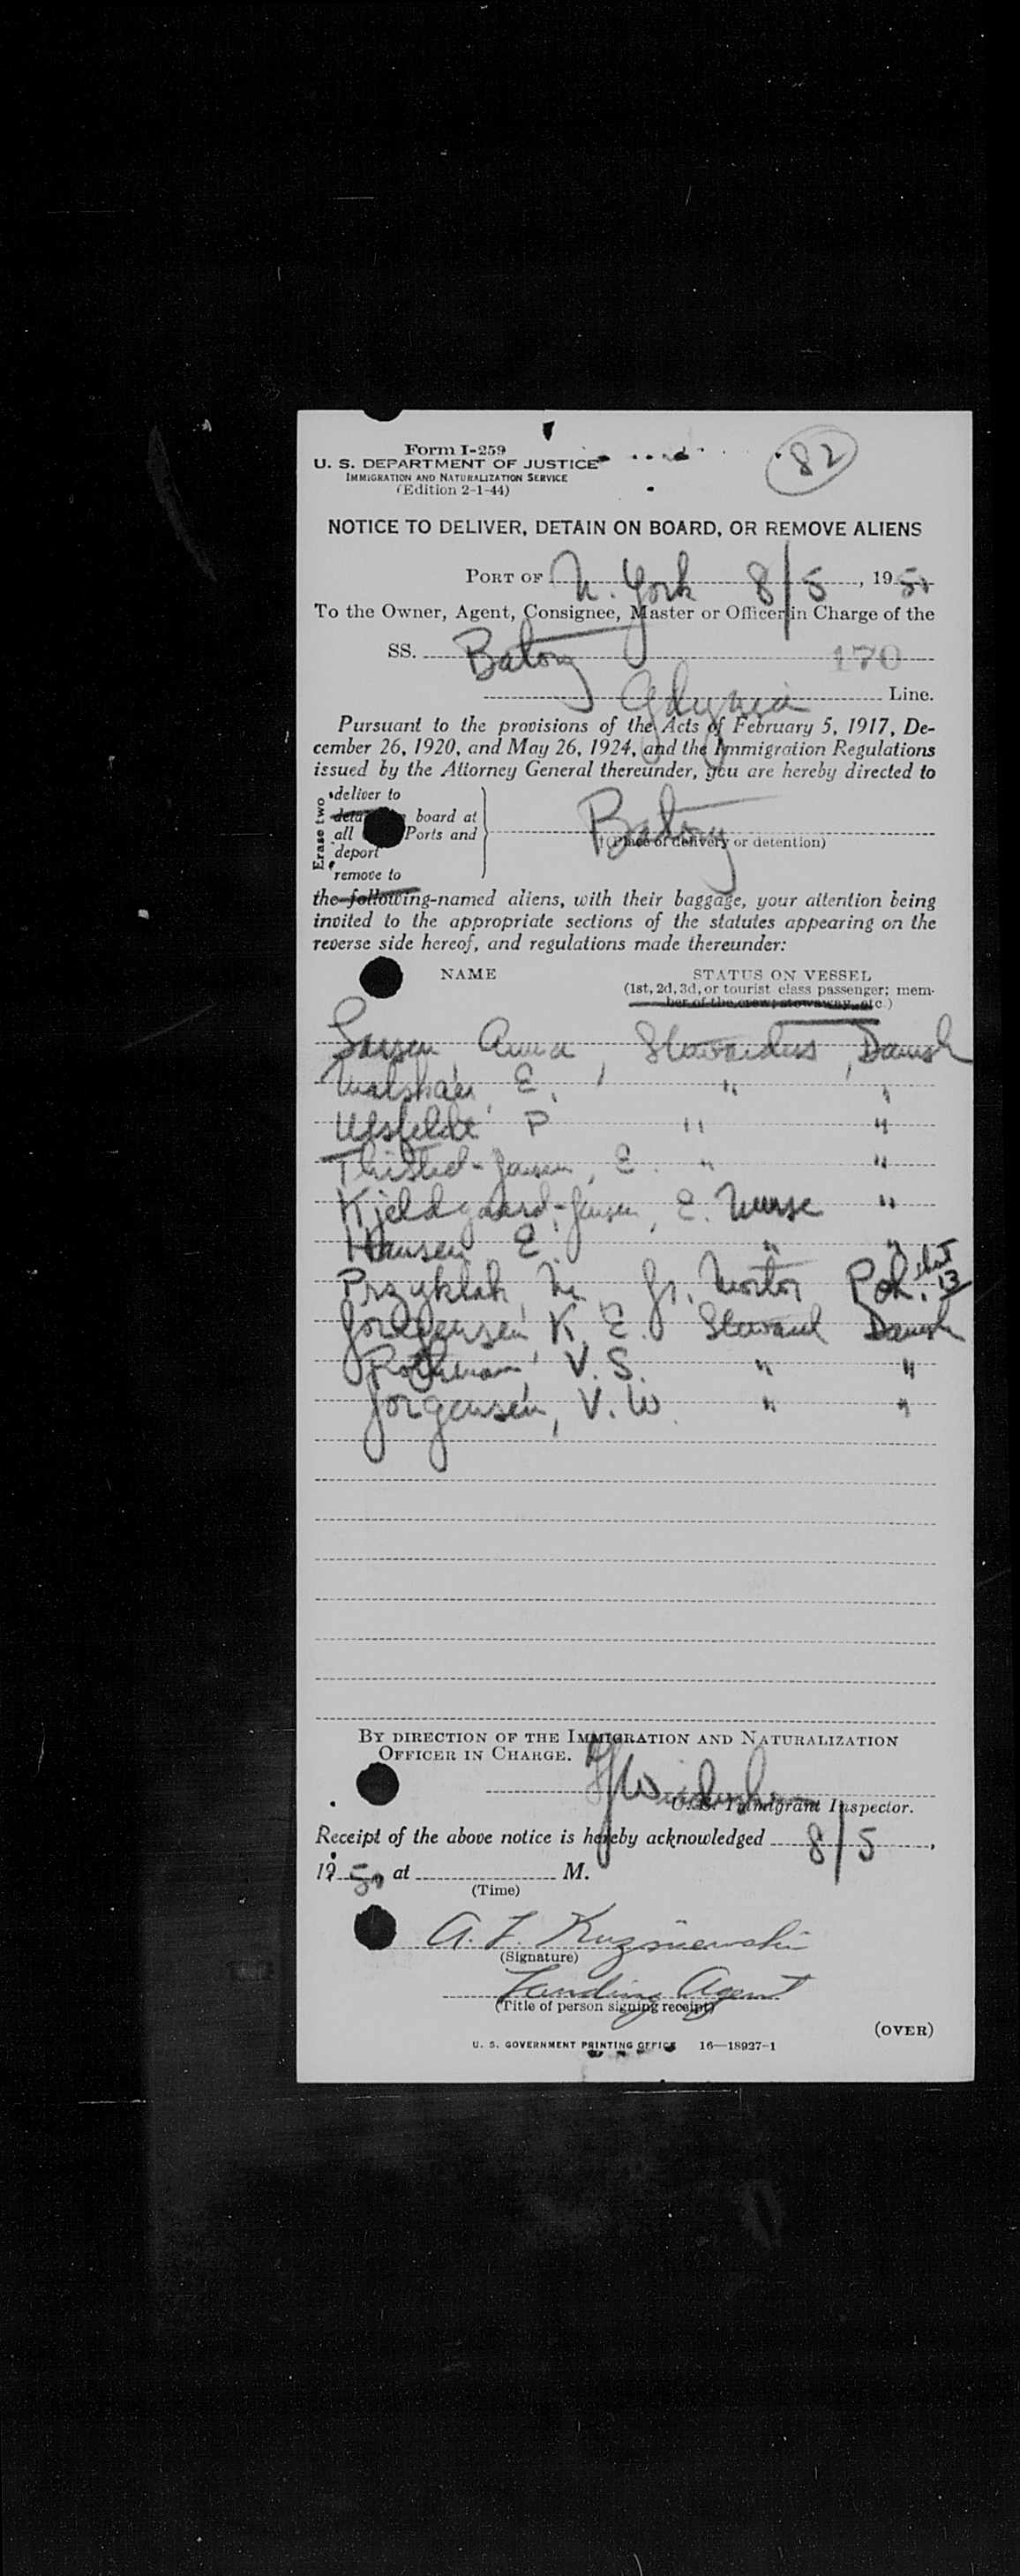 Form I-259
U. S. DEPARTMENT OF JUSTICE
IMMIGRATION AND NATURALIZATION SERVICE
(Edition 2-1-44)
82
NOTICE TO DELIVER, DETAIN ON BOARD, OR REMOVE ALIENS
PORT OF N. York 8/5, 1950
To the Owner, Agent, Consignee, Master or Officer in Charge of the
SS. Batory 170
Gdynia Line.
Pursuant to the provisions of the Acts of February 5, 1917, De-
cember 26, 1920, and May 26, 1924, and the Immigration Regulations
issued by the Attorney General thereunder, you are hereby directed to
Erase two
deliver to
board at
all Ports and
deport
remove to
Batory
(Place of delivery or detention)
the following-named aliens, with their baggage, your attention being
invited to the appropriate sections of the statutes appearing on the
reverse side hereof, and regulations made thereunder:
NAME STATUS ON VESSEL
(1st, 2d, 3d, or tourist class passenger; mem-
ber of the crew; stowaway, etc.)
Larsen Anna, Stewardess, Danish
E. " "
P " "
Thisted-Jensen, E. " "
Kjeldgaard-Jensen, E. Nurse "
Hansen E. " "
Przyklak, M. Jr. Poh. 13
K. E. Steward Danish
V. S. " "
Jorgensen, V. W. " "
BY DIRECTION OF THE IMMIGRATION AND NATURALIZATION
OFFICER IN CHARGE.
U. S. Immigrant Inspector.
Receipt of the above notice is hereby acknowledged 8/5,
1950 at M.
(Time)
A. J. Kuzniewski
(Signature)
Landing Agent
(Title of person signing receipt)
(OVER)
U. S. GOVERNMENT PRINTING OFFICE 16—18927-1